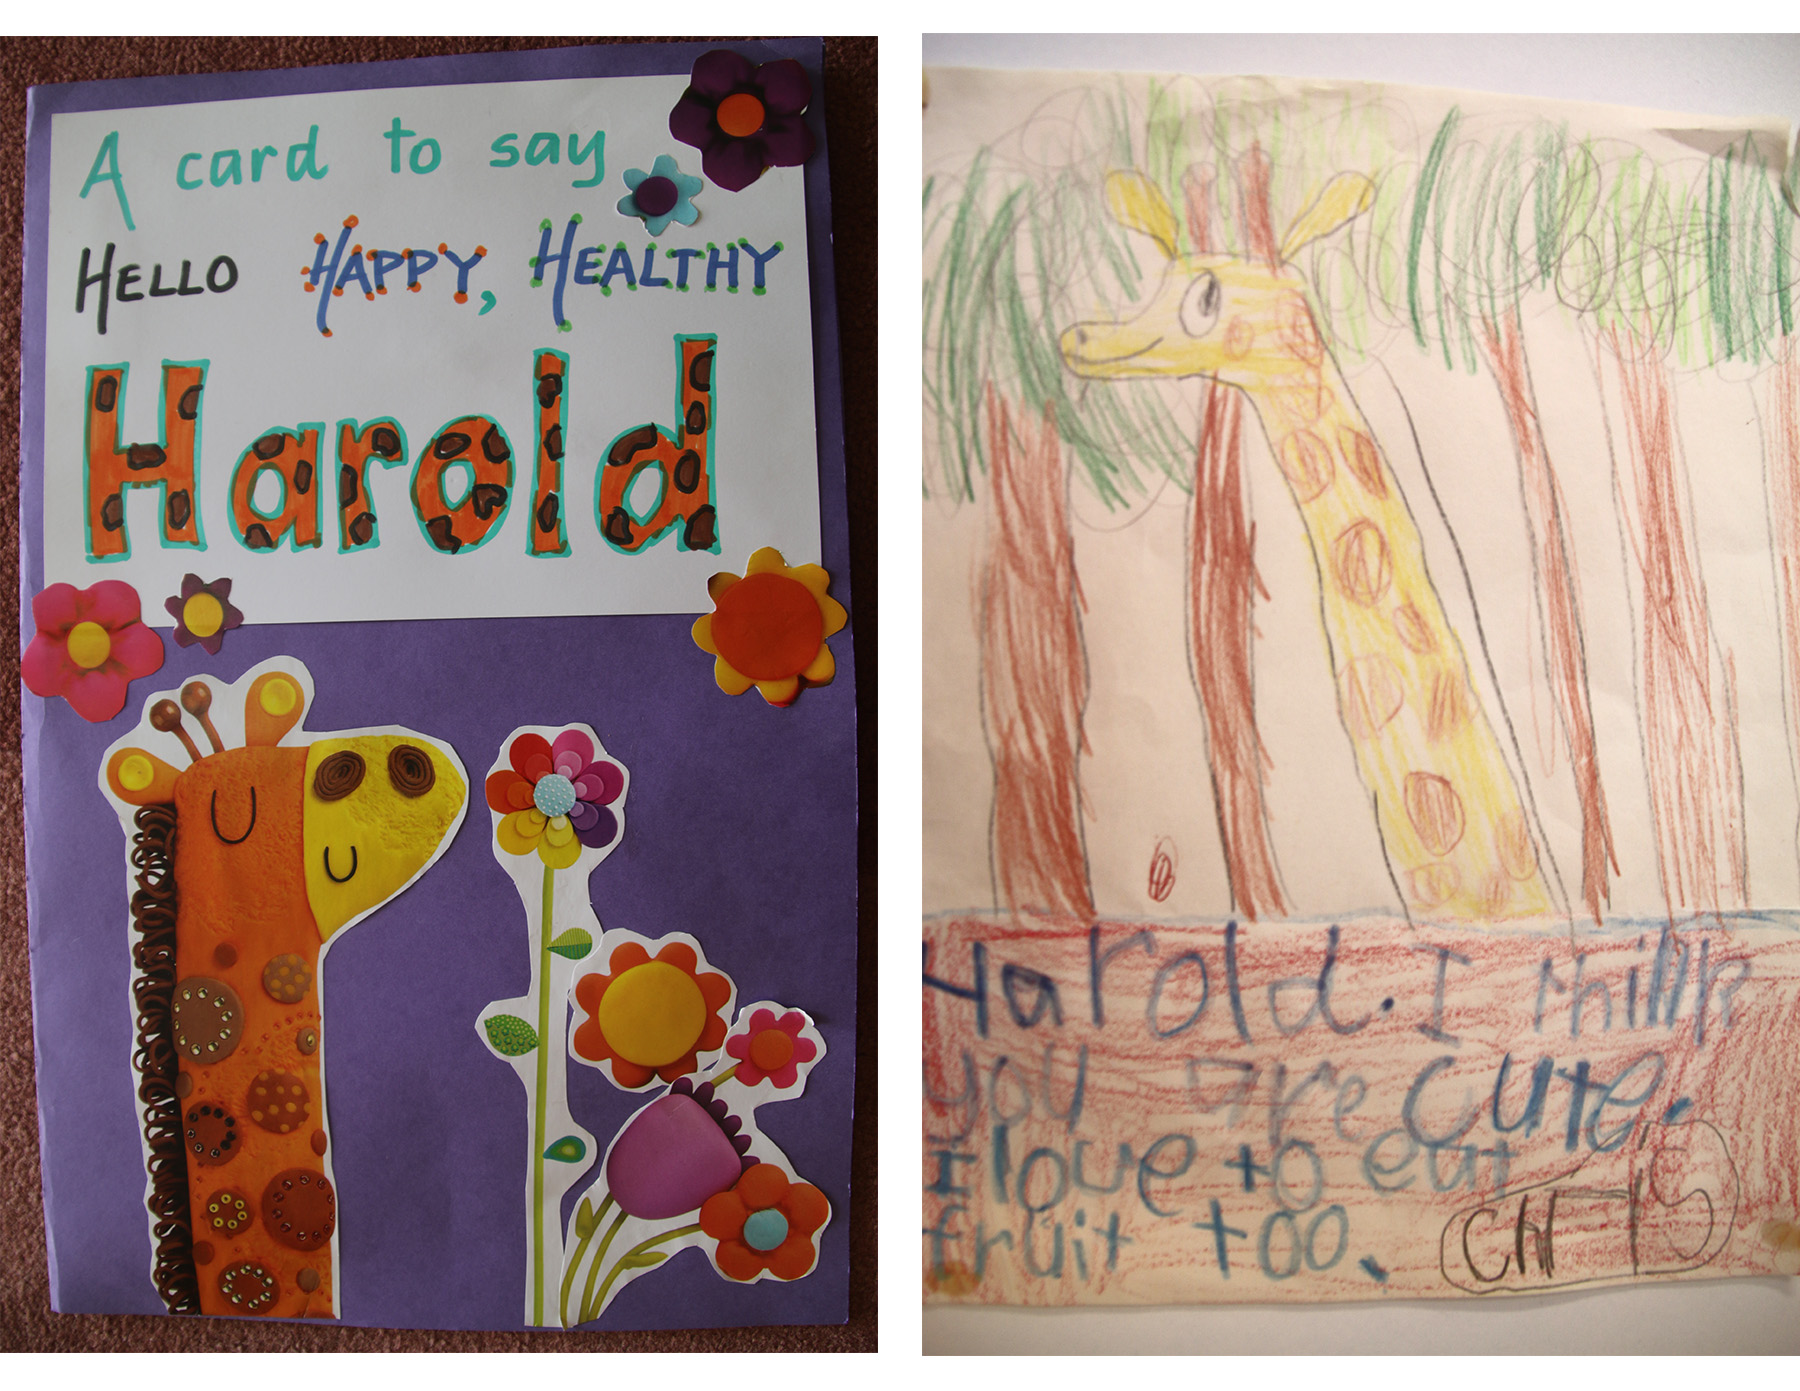 A card to say
HELLO HAPPY, HEALTHY
Harold
Harold. I think
you are cute.
I love to eat
fruit too.